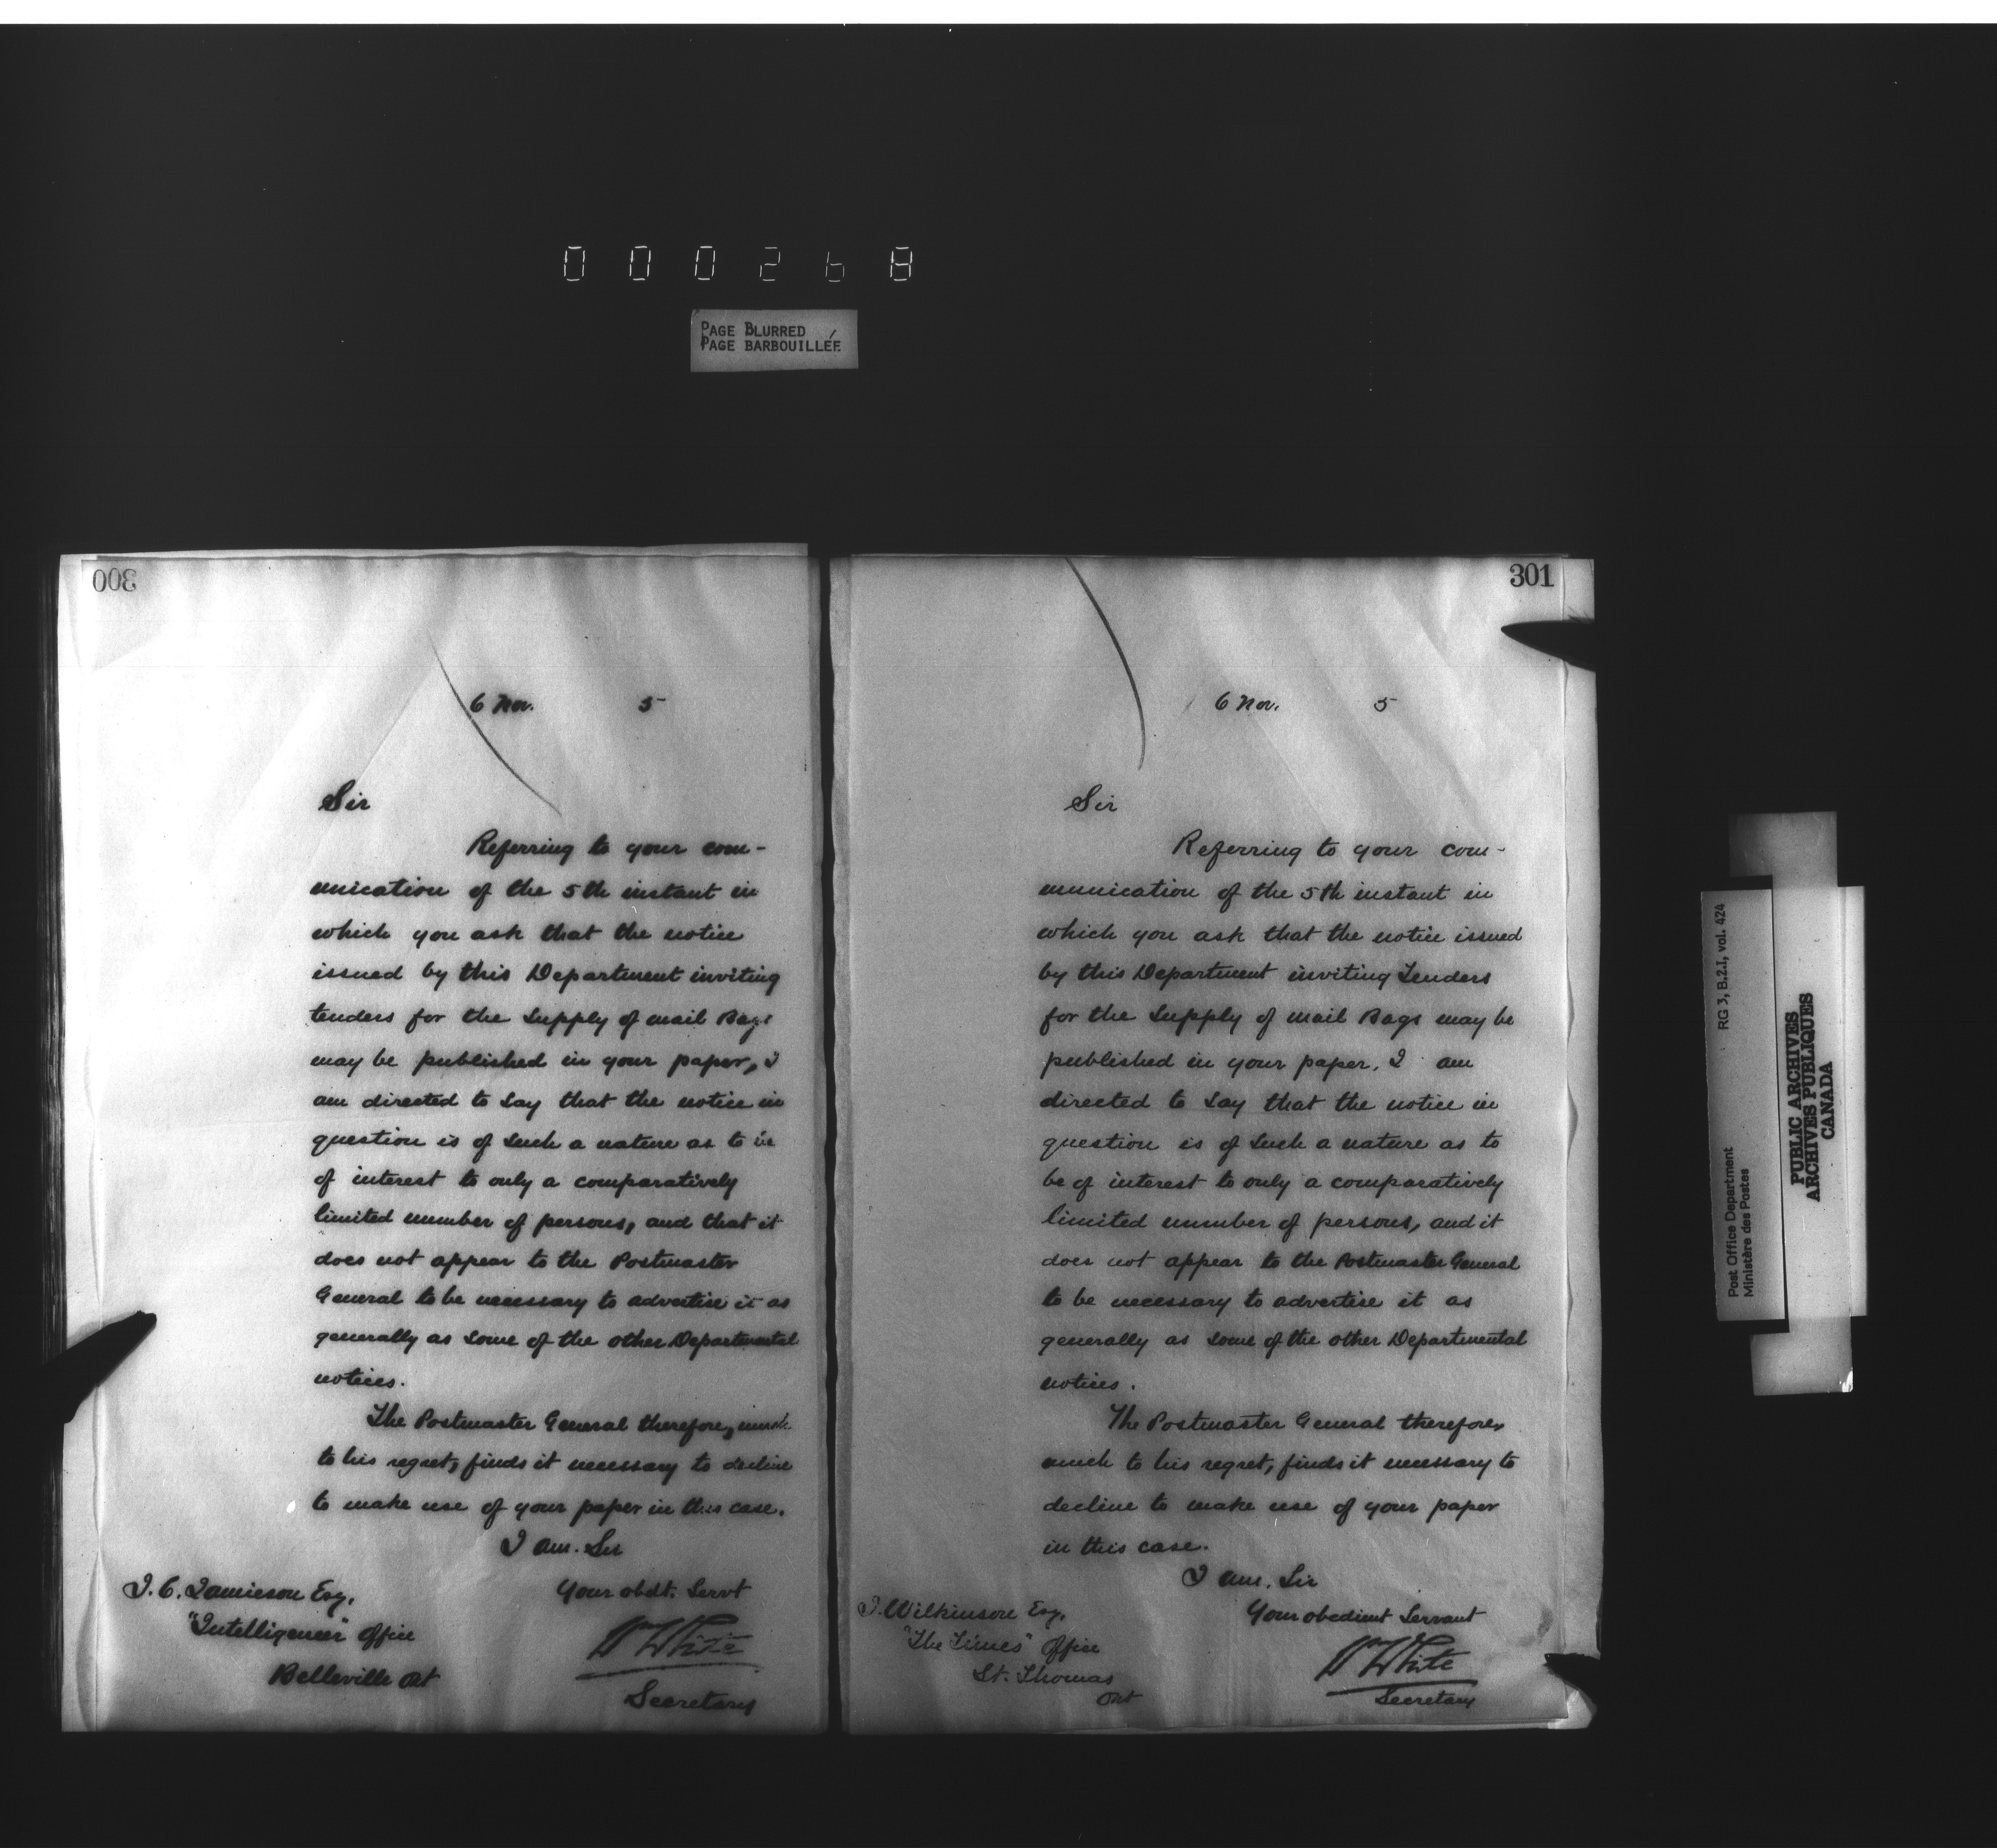 000268
PAGE BLURRED
PAGE BARBOUILLÉE
300
6 Nov. 5
Sir
Referring to your com-
munication of the 5th instant in
which you ask that the notice
issued by this Department inviting
tenders for the Supply of mail Bags
may be published in your paper, I
am directed to say that the notice in
question is of such a nature as to be
of interest to only a comparatively
limited number of persons, and that it
does not appear to the Postmaster
General to be necessary to advertise it as
generally as some of the other Departmental
notices.
The Postmaster General therefore, much
to his regret, finds it necessary to decline
to make use of your paper in this case.
I am. Sir
Your obdt. Servt
WWhite
Secretary
J. C. Jamieson Esq.
"Intelligencer" Office
Belleville Ont
301
6 Nov. 5
Sir
Referring to your com-
munication of the 5th instant in
which you ask that the notice issued
by this Department inviting Tenders
for the Supply of mail Bags may be
published in your paper. I am
directed to say that the notice in
question is of such a nature as to
be of interest to only a comparatively
limited number of persons, and it
does not appear to the Postmaster General
to be necessary to advertise it as
generally as some of the other Departmental
notices.
The Postmaster General therefore,
much to his regret, finds it necessary to
decline to make use of your paper
in this case.
I am. Sir
Your obedient Servant
WWhite
Secretary
J. Wilkinson Esq.
"The Times" Office
St. Thomas
Ont
Post Office Department RG 3, B.2.1, vol. 424
Ministère des Postes
PUBLIC ARCHIVES
ARCHIVES PUBLIQUES
CANADA